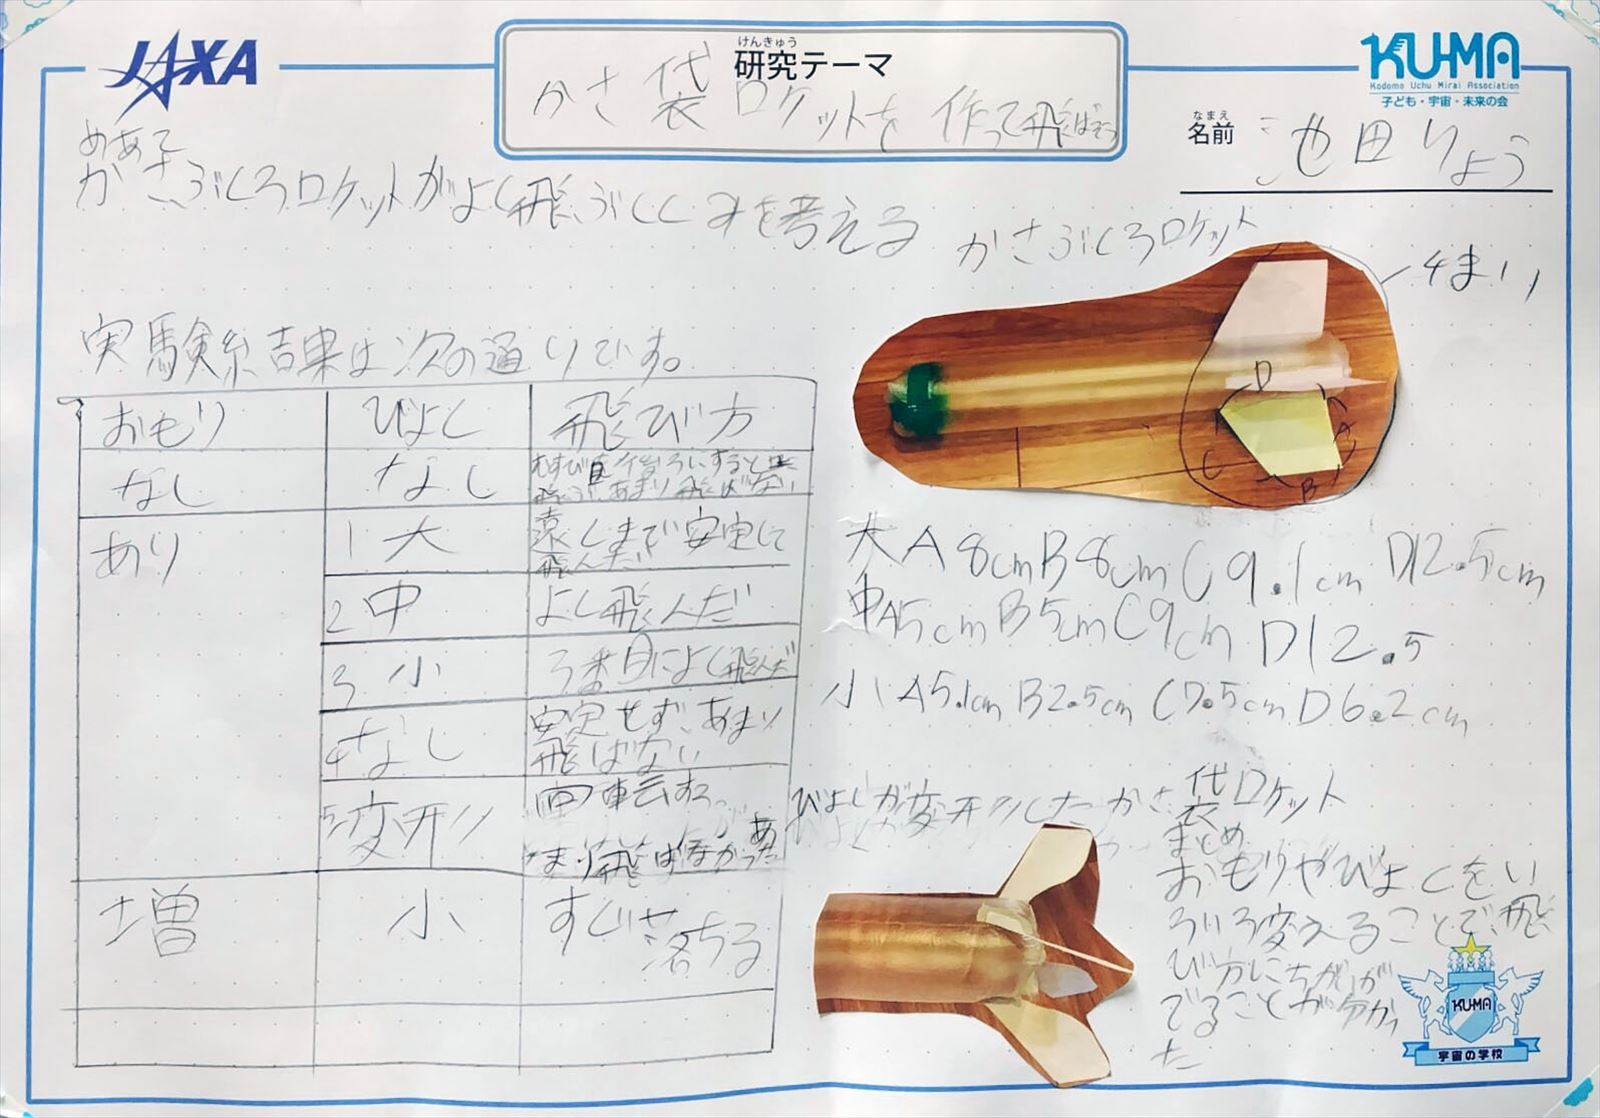 JAXA
けんきゅう
研究テーマ
かさ袋ロケットを作って飛ばそう
KUMA
Kodomo Uchu Mirai Association
子ども・宇宙・未来の会
なまえ
名前
池田りょう
めあて
かさぶくろロケットがよく飛ぶしくみを考える
かさぶくろロケット
4まい
実験結果は次の通りです。
おもり びよく 飛び方
なし なし
あまり飛ばない
あり 1 大 遠くまで安定して
飛んだ
2 中 よく飛んだ
3 小 3番目によく飛んだ
4 なし 安定せず、あまり
飛ばない
5 変形 回転する
あまり飛ばなかった
増 小 すぐ落ちる
D
A
C
B
大 A 8cm B 8cm C 9.1cm D12.5cm
中 A5cm B5cm C9cm D12.5
小 A5.1cm B2.5cm C7.5cm D6.2cm
びよくが変形したかさ袋ロケット
まとめ
おもりやびよくをい
ろいろ変えることで飛
び方にちがいが
でることが分かっ
た
KUMA
宇宙の学校